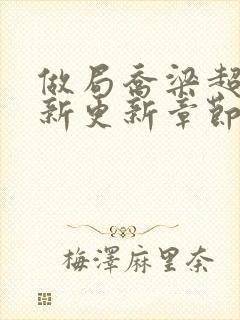 做局乔梁超
新更新章節
梅澤麻里奈